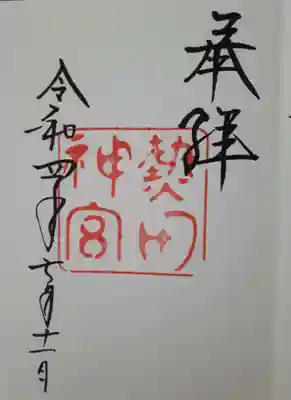 奉拝
熱田
神宮
令和四年七月十一日